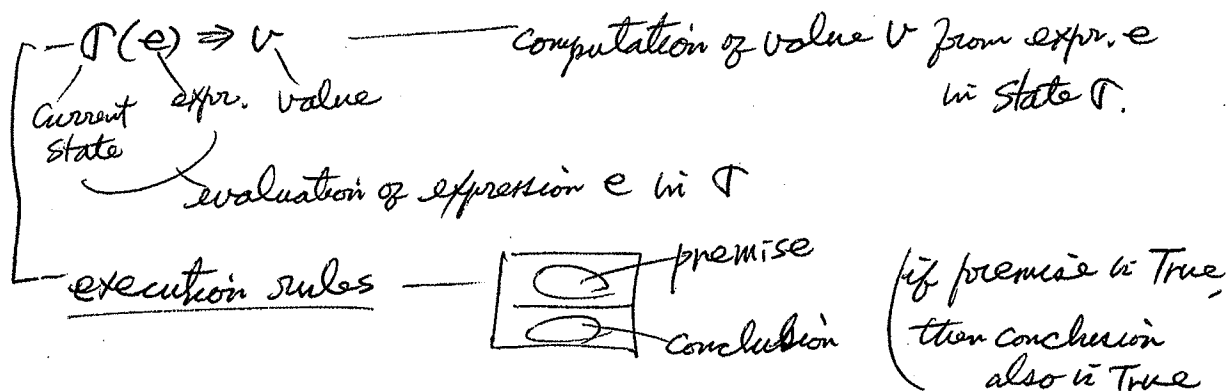 σ(e) ⇒ v — computation of value v from expr. e
in state σ.
current state
expr.
value
evaluation of expression e in σ
execution rules —
premise
conclusion
if premise is True,
then conclusion
also is True